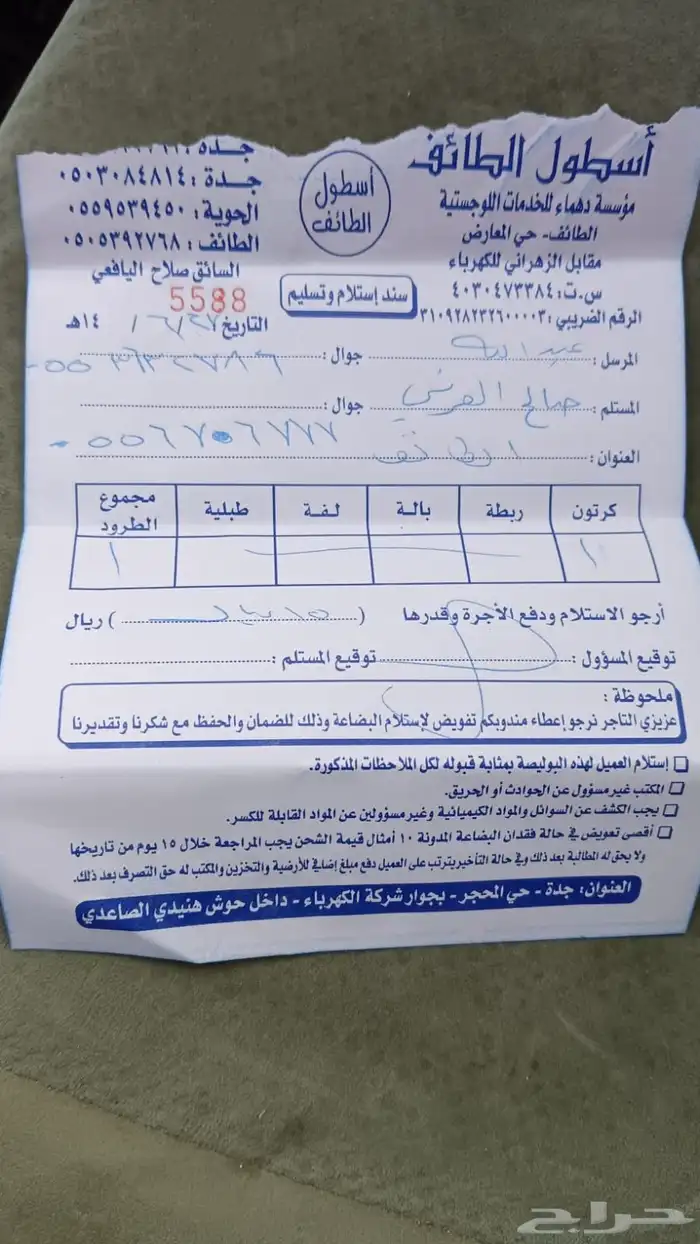 أسطول الطائف
مؤسسة دهماء للخدمات اللوجستية
الطائف- حي المعارض
مقابل الزهراني للكهرباء
س.ت: ٤٠٣٠٤٧٣٣٨٤
الرقم الضريبي: ٣١٠٩٢٨٢٣٢٦٠٠٠٠٣
أسطول
الطائف
سند إستلام وتسليم
جدة:
جدة: ٠٥٠٣٠٨٤٨١٤
الحوية: ٠٥٥٩٥٣٩٤٥٠
الطائف: ٠٥٠٥٣٩٢٧٦٨
السائق صلاح اليافعي
5588
التاريخ ٢٧/٦/ ١٤هـ
المرسل: عبدالله جوال:
المستلم: صالح جوال:
العنوان: الطائف ٠٥٥٦٧٠٦٧٧٧
كرتون ربطة بالة لفة طبلية مجموع الطرود
١ ١
أرجو الاستلام ودفع الأجرة وقدرها ( ) ريال
توقيع المسؤول: توقيع المستلم:
ملحوظة:
عزيزي التاجر نرجو إعطاء مندوبكم تفويض لإستلام البضاعة وذلك للضمان والحفظ مع شكرنا وتقديرنا
إستلام العميل لهذه البوليصة بمثابة قبوله لكل الملاحظات المذكورة.
المكتب غير مسؤول عن الحوادث أو الحريق.
يجب الكشف عن السوائل والمواد الكيميائية وغير مسؤولين عن المواد القابلة للكسر.
أقصى تعويض في حالة فقدان البضاعة المدونة ١٠ أمثال قيمة الشحن يجب المراجعة خلال ١٥ يوم من تاريخها
ولا يحق له المطالبة بعد ذلك وفي حالة التأخير يترتب على العميل دفع مبلغ إضافي للأرضية والتخزين والمكتب له حق التصرف بعد ذلك.
العنوان: جدة - حي المحجر - بجوار شركة الكهرباء - داخل حوش هنيدي الصاعدي
حراج